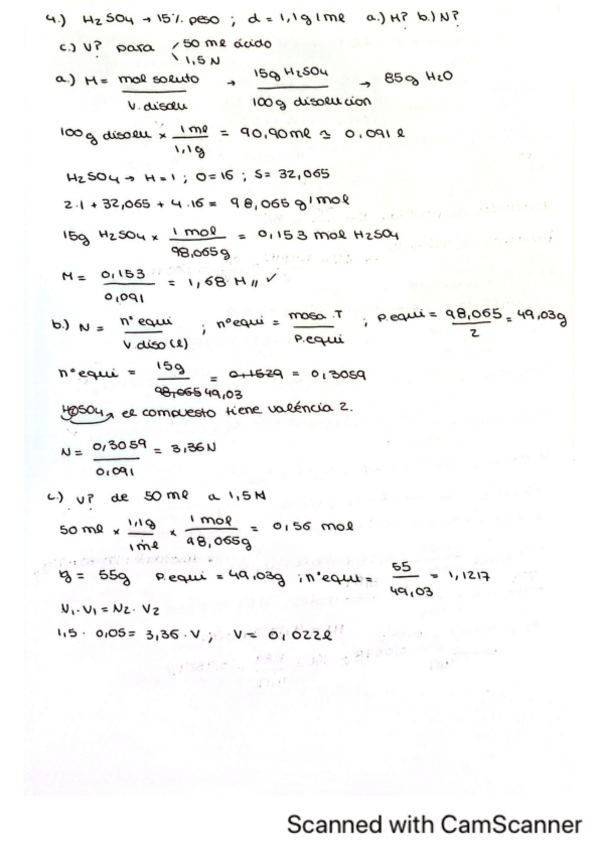 4.) H2SO4 → 15% peso ; d = 1,1g/ml a.) M? b.) N?
c.) V? para 50 ml ácido
1,5 N
a.) M = mol soluto / V. disolu → 15g H2SO4 / 100g disolucion → 85g H2O
100g disolu × 1ml / 1,1g = 90,90ml ≃ 0,091 l
H2SO4 → H=1 ; O=16 ; S= 32,065
2·1 + 32,065 + 4·16 = 98,065 g/mol
15g H2SO4 × 1 mol / 98,065g = 0,153 mol H2SO4
M = 0,153 / 0,091 = 1,68 M // ✓
b.) N = nº equi / V diso (l) ; nº equi = masa .T / P.equi ; P.equi = 98,065 / 2 = 49,03g
nº equi = 15g / 98,065 49,03 = 0,1529 = 0,3059
H2SO4 → el compuesto tiene valéncia 2.
N = 0,3059 / 0,091 = 3,36 N
c.) V? de 50 ml a 1,5 N
50 ml × 1,1g / 1ml × 1 mol / 98,065g = 0,56 mol
g = 55g P.equi = 49,03g ; nº equi = 55 / 49,03 = 1,1217
N1 · V1 = N2 · V2
1,5 · 0,05 = 3,36 · V ; V = 0,022l
Scanned with CamScanner